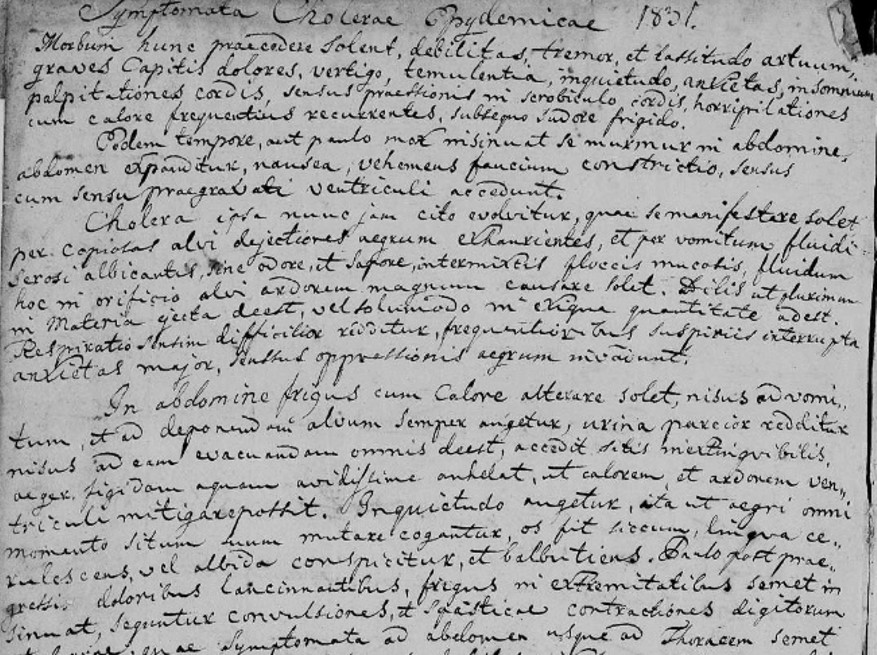 Symptomata Cholerae Epydemicae 1831.
Morbum hunc praecedere solent, debilitas, tremor, et lassitudo artuum,
graves Capitis dolores, vertigo, temulentia, inquietudo, anxietas, insomnium
palpitationes cordis, sensus praessionis in scrobiculo cordis, horripilationes
cum calore frequentius recurrentes, subsequo sudore frigido.
Eodem tempore, aut paulo mox insinuat se murmur in abdomine,
abdomen expanditur, nausea, vehemens faucium constrictio, sensus
cum sensu praegravati ventriculi accedunt.
Cholera ipsa nunc jam cito evolvitur, quae se manifestare solet
per copiosas alvi dejectiones aegrum exhaurientes, et per vomitum fluidi
serosi albicantis, sine odore, et sapore, intermixtis floccis mucosis, fluidum
hoc in orificio alvi ardorem magnum causare solet. Bilis ut plurimum
in Materia ejecta deest, vel solummodo in exigua quantitate adest.
Respiratio sensim difficilior redditur, frequentioribus suspiriis interrupta
anxietas major, sensus oppressionis aegrum invadunt.
In abdomine frigus cum Calore alterare solet, nisus ad vomi„
tum, et ad deponendam alvum semper augetur, urina parcior redditur
nisus ad eam evacuandam omnis deest, accedit sitis inextinqvibilis,
aeger frigidam aquam avidissime anhelat, ut calorem, et ardorem ven„
triculi mitigare possit. Inquietudo augetur, ita ut aegri omni
momento situm suum mutare cogantur, os fit siccum, lingva ce„
rulescens, vel albida conspicitur, et balbutiens. Paulo post prae„
gressis doloribus lancinnantibus, frigus in extremitatibus semet in
sinuat, seguntur convulsiones, et spasticae contractiones digitorum
quae Symptomata ad abdomen usque ad Thoracem semet